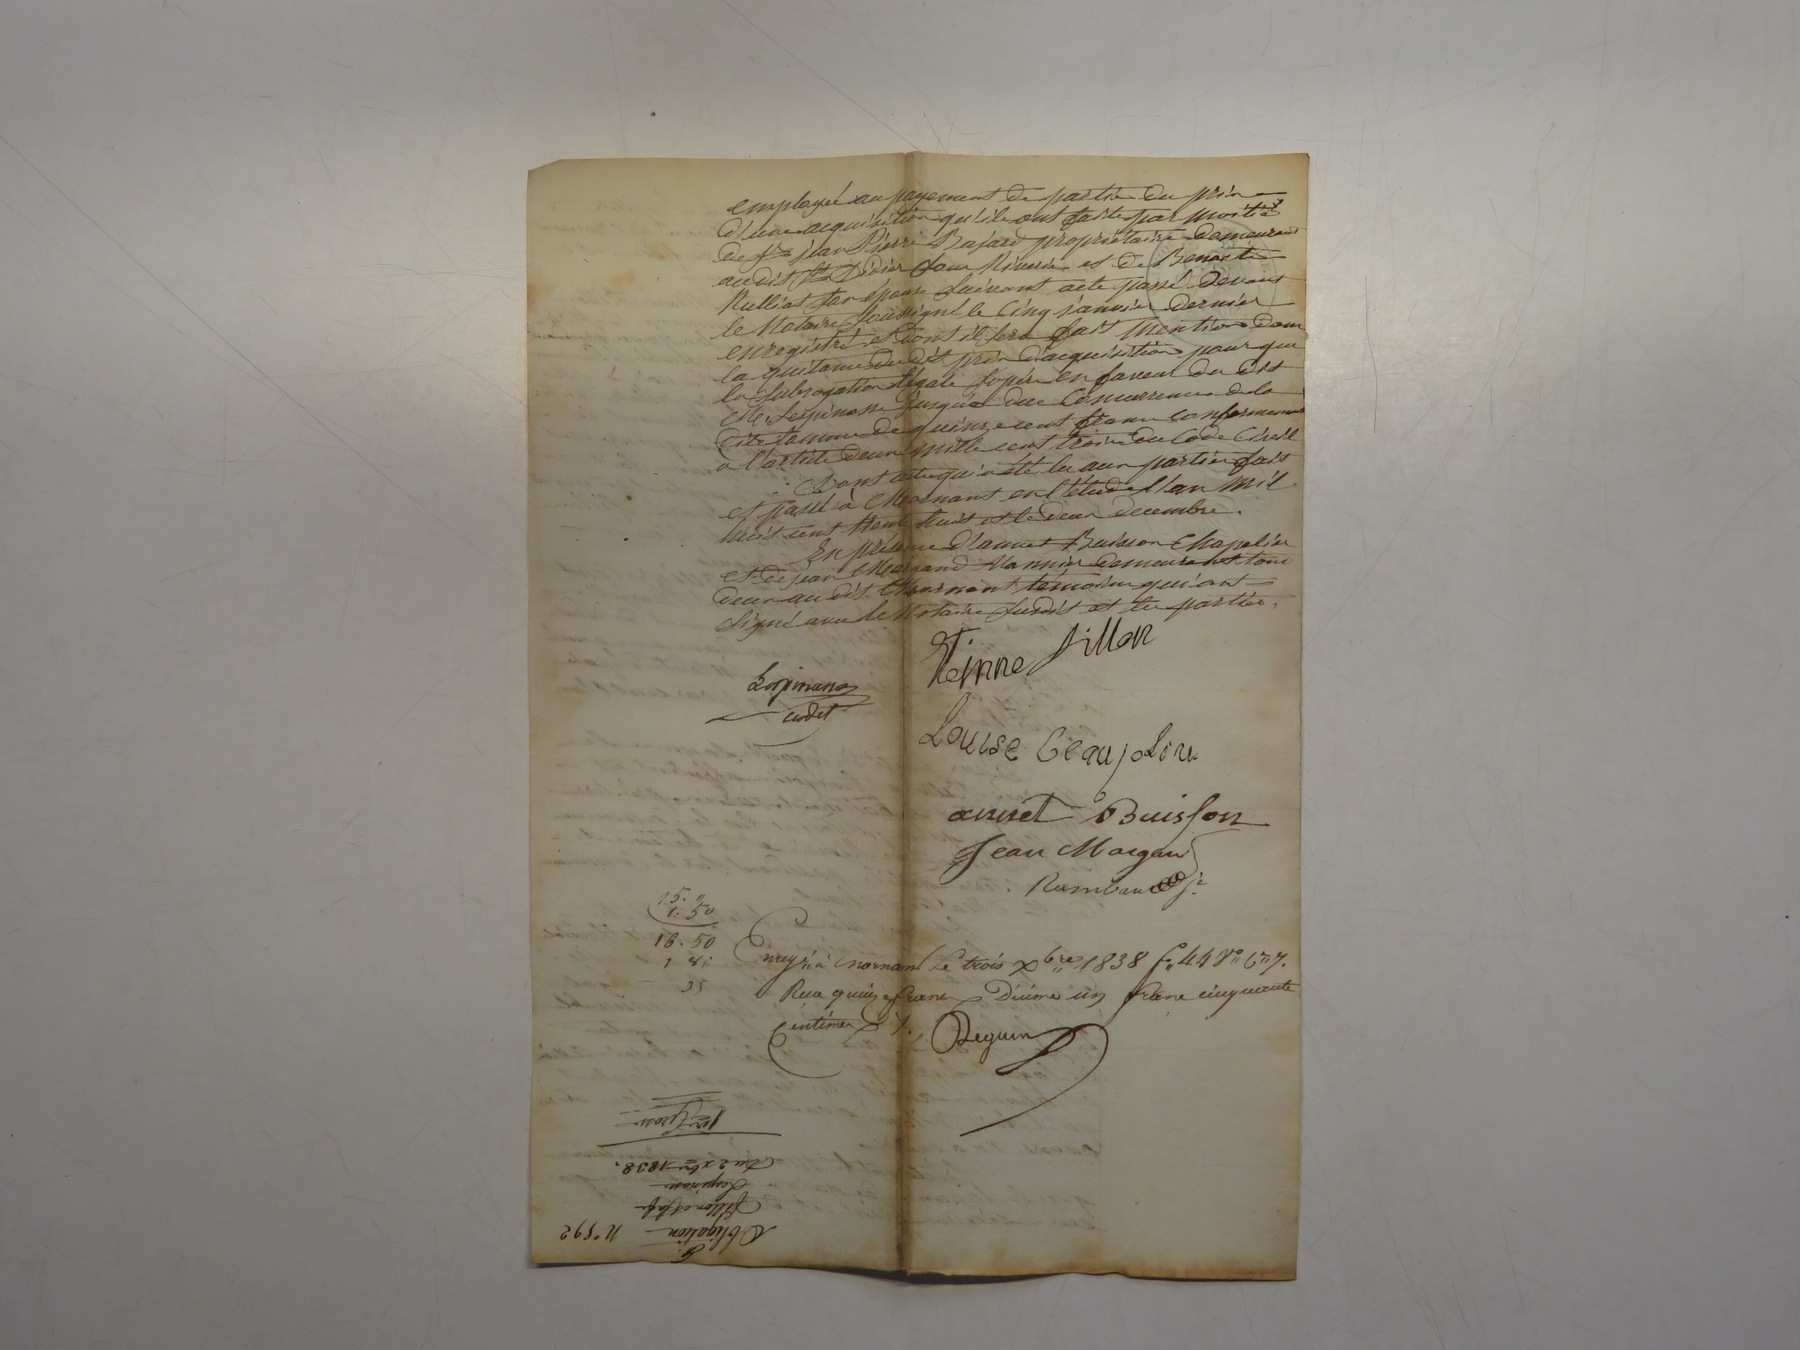 employée au payement de partie du prix
d'une acquisition qu'ils ont faite par moitié
de sr Jean Pierre Bajard propriétaire demeurant
audit St Didier sous Riverie et de Benoite
Rulliat son épouse suivant acte passé devant
le Notaire soussigné le cinq janvier dernier
enregistré et dont il sera fait mention dans
la quitance du dit prix d'acquisition pour que
la subrogation légale s'opère en faveur du dit
Mr Lespinasse jusqu'à due concurrence de la
dite somme de quinze cent francs conformement
à l'article deux mille cent trois du Code Civil
Dont acte qui a été lu aux parties fait
et passé à Mornant en l'étude l'an mil
huit cent trente huit et le deux decembre.
En présence d'annet Buisson Chapelier
et de jean Margand Vannier demeurant tous
deux au dit Mornant témoins qui ont
signé avec le Notaire susdit et les parties.
Etienne Fillon
Lespinasse
cadet
Louise Beaujolin
annet Buisson
Jean Margan
Rambaud
15. "
1. 50
16. 50
Enregré à Mornant le trois xbre 1838 fo 44 Vo Cn 7.
Reçu quinze francs Dixme un franc cinquante
Centimes
Reguin
1re Grosse
Du 2 xbre 1838.
Lespinasse
Fillon et sa fe
Obligation
N° 592